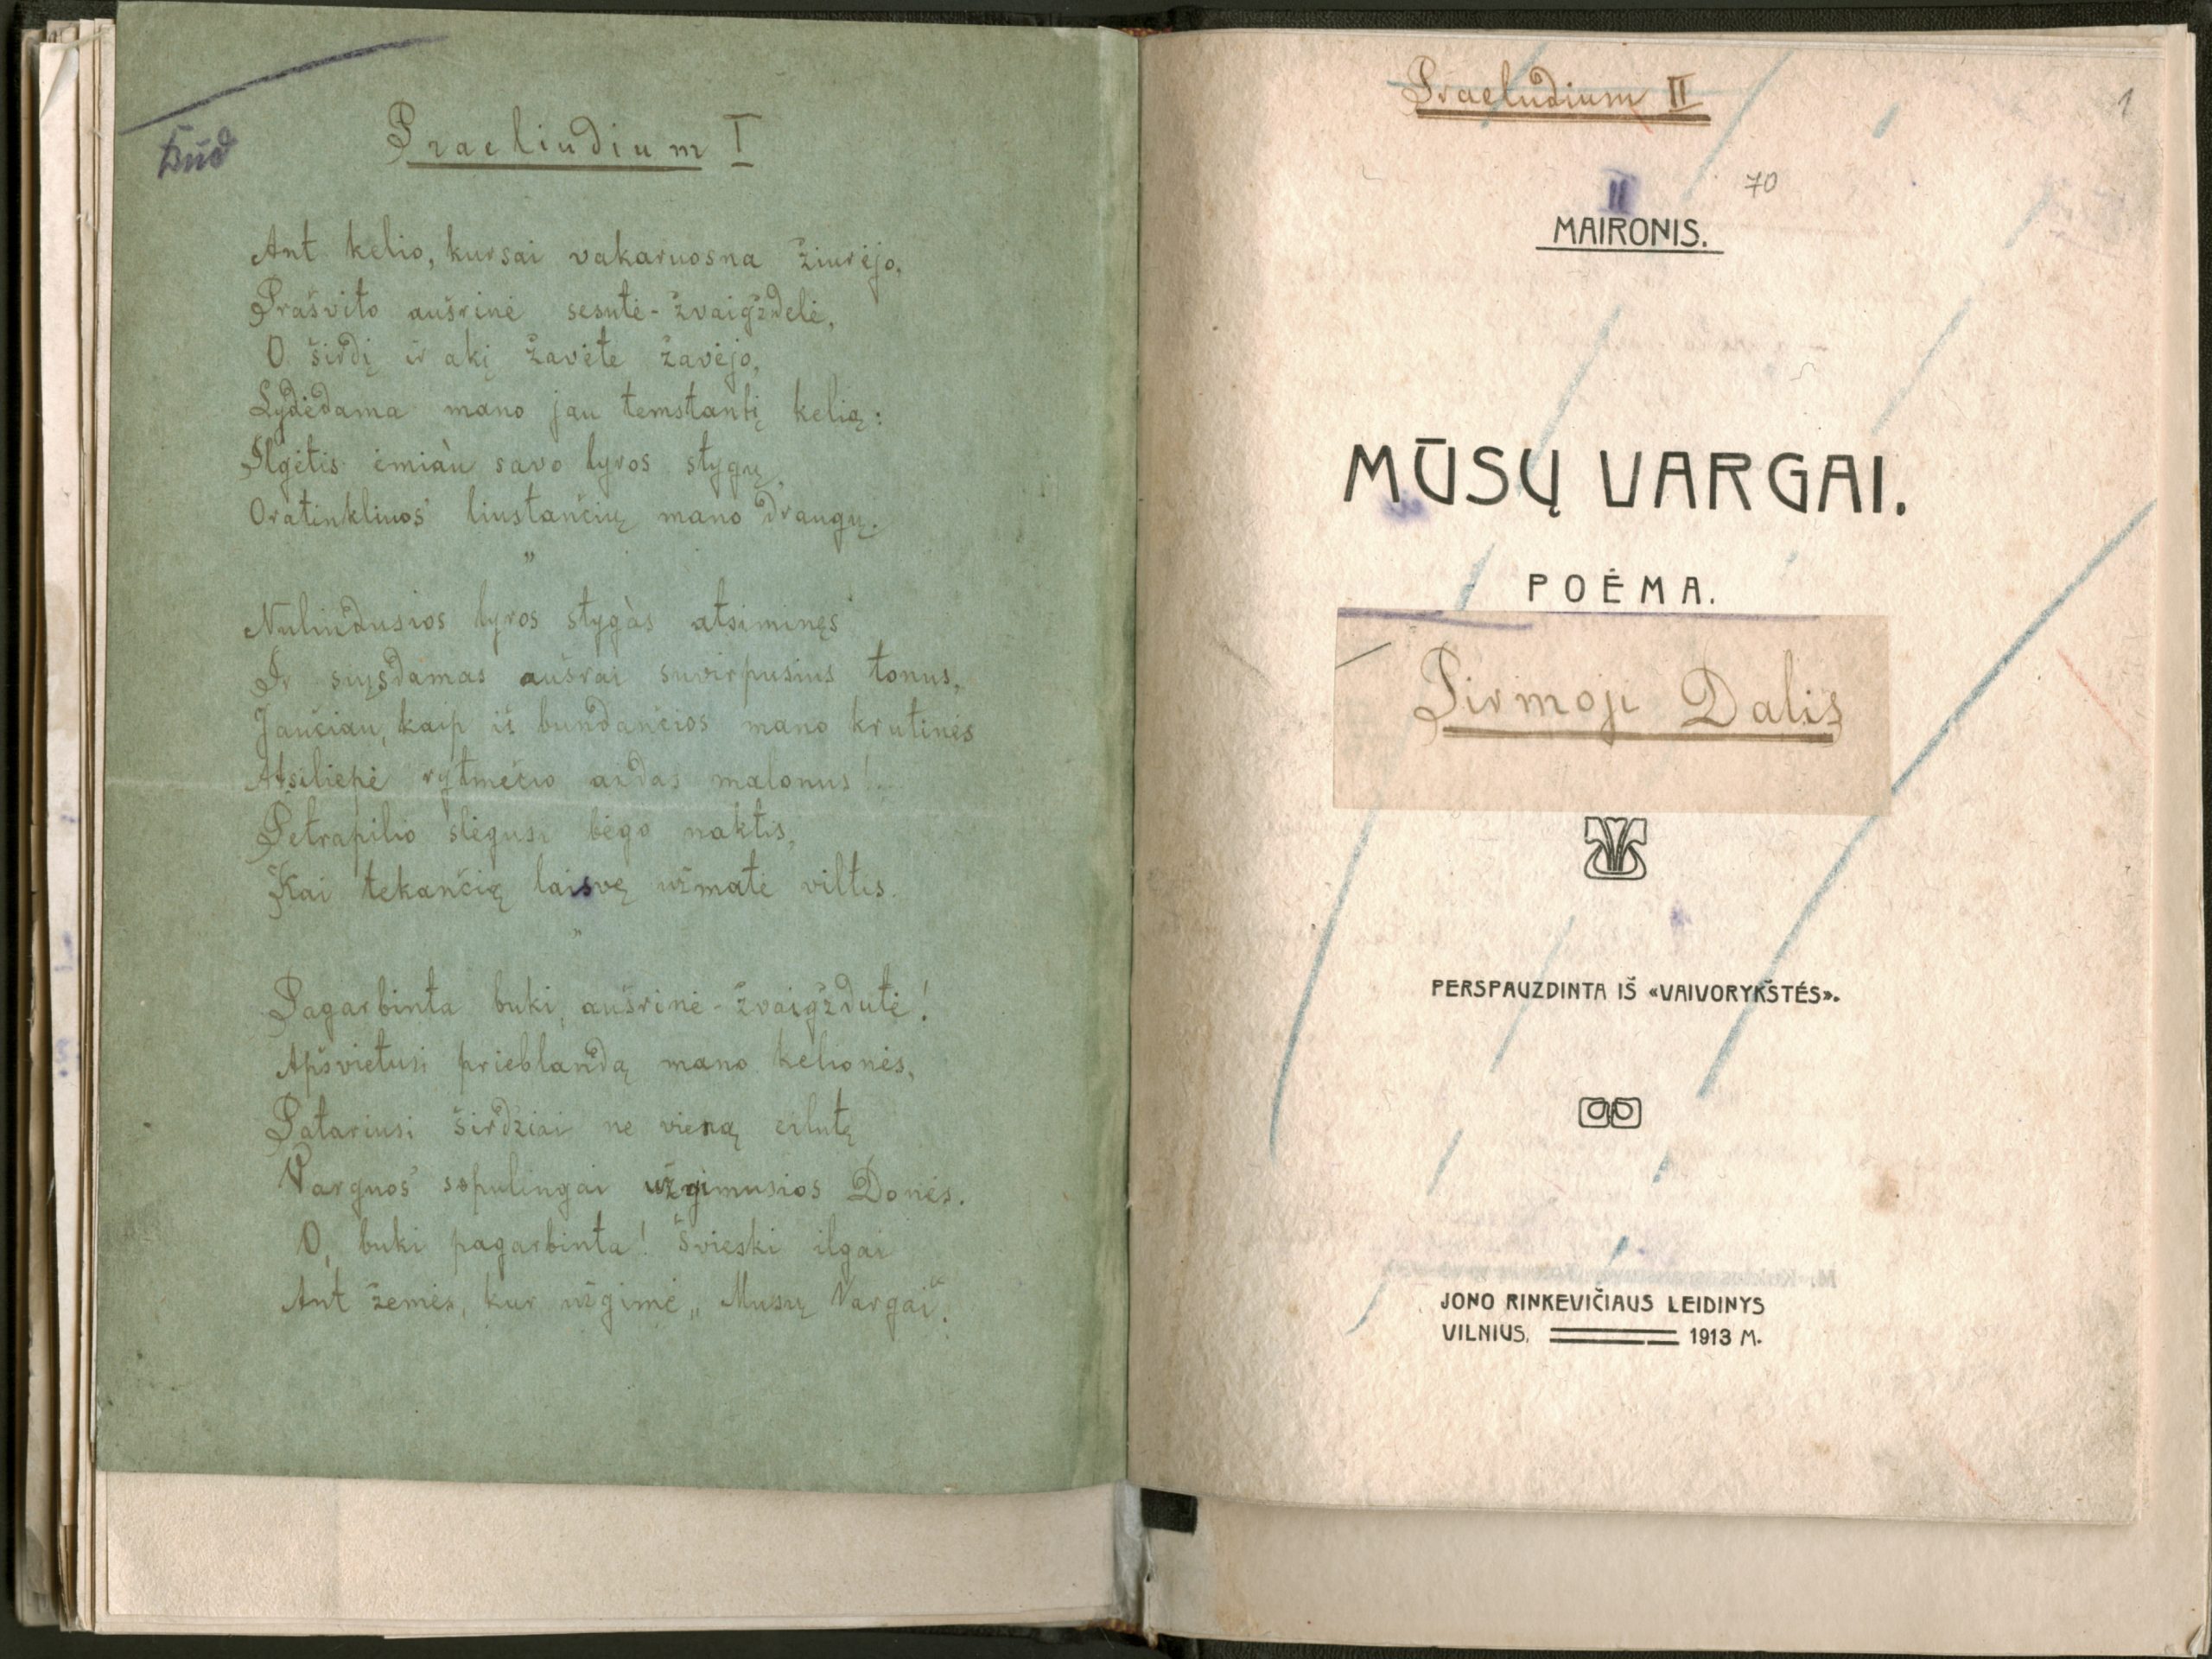 Praeliudium I
Ant kelio, kursai vakaruosna žiurėjo,
Prašvito aušrinė sesutė-žvaigždelė,
O širdį ir akį žavėte žavėjo,
Lydėdama mano jau temstantį kelią:
Ilgėtis ėmiàu savo lyros stygų,
Oratinkliuos liustančių mano draugų.
"
Nuliudusios lyros stygàs atsiminęs
Ir siųsdamas aušrai suvirpusius tonus,
Jaučiau, kaip iš bundančios mano krutinės
Atsiliepė rytmečio aidas malonus!..
Petrapilio slėgusi bėgo naktis,
Kai tekančią laisvę užmatė viltis.
"
Pagarbinta buki, aušrinė-žvaigždutė!
Apšvietusi prieblandą mano kelionės,
Patariusi širdžiai ne vieną eilutę
Varguos sopulingai užgimusios Donės.
O, buki pagarbinta! Švieski ilgai
Ant žemės, kur užgimė „Musų Vargai".
Praeludium II
1
II
70
MAIRONIS.
MŪSŲ VARGAI.
POĖMA.
Pirmoji Dalis
PERSPAUZDINTA IŠ «VAIVORYKŠTĖS».
JONO RINKEVIČIAUS LEIDINYS
VILNIUS, 1913 M.